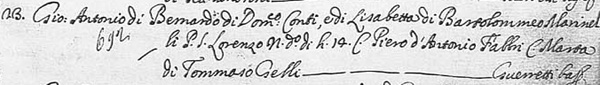 23. Gio: Antonio di Bernardo di Dom.co Conti, e di Lisabetta di Bartolommeo Marinel
li P. S. Lorenzo N. d.o di h. 14. C. Piero d'Antonio Fabbri C. Marta
di Tommaso Gelli — Guerretti